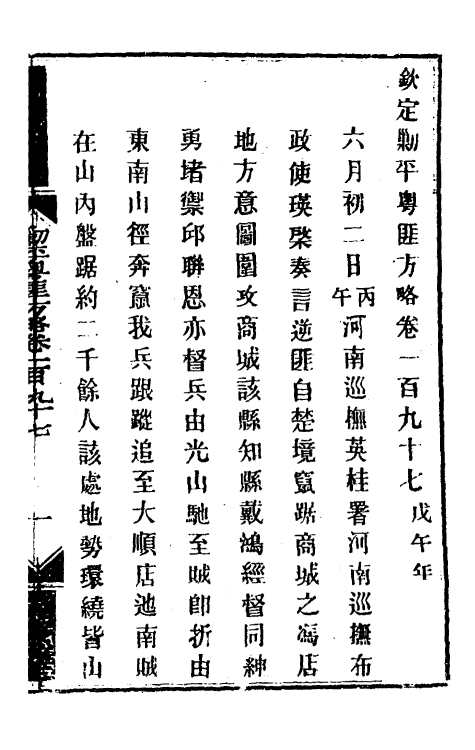 欽定勦平粵匪方略卷一百九十七戊午年
六月初二日丙午河南巡撫英桂署河南巡撫布
政使瑛棨奏言逆匪自楚境竄踞商城之馮店
地方意圖圍攻商城該縣知縣戴鴻經督同紳
勇堵禦邱聯恩亦督兵由光山馳至賊卽折由
東南山徑奔竄我兵跟蹤追至大順店迤南賊
在山內盤踞約二千餘人該處地勢環繞皆山
粵匪方略卷一百九十七
一